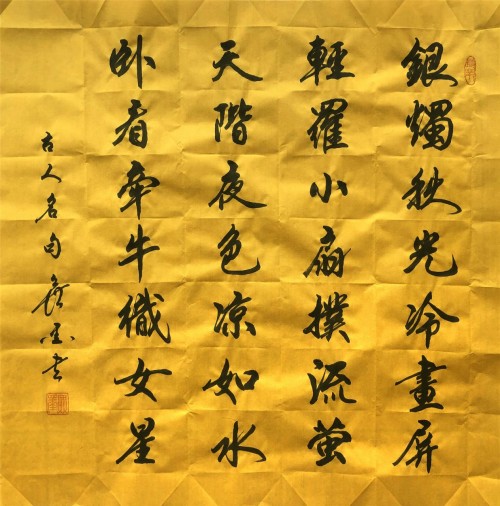 銀燭秋光冷畫屏
輕羅小扇撲流螢
天階夜色凉如水
卧看牽牛織女星
古人名句
书